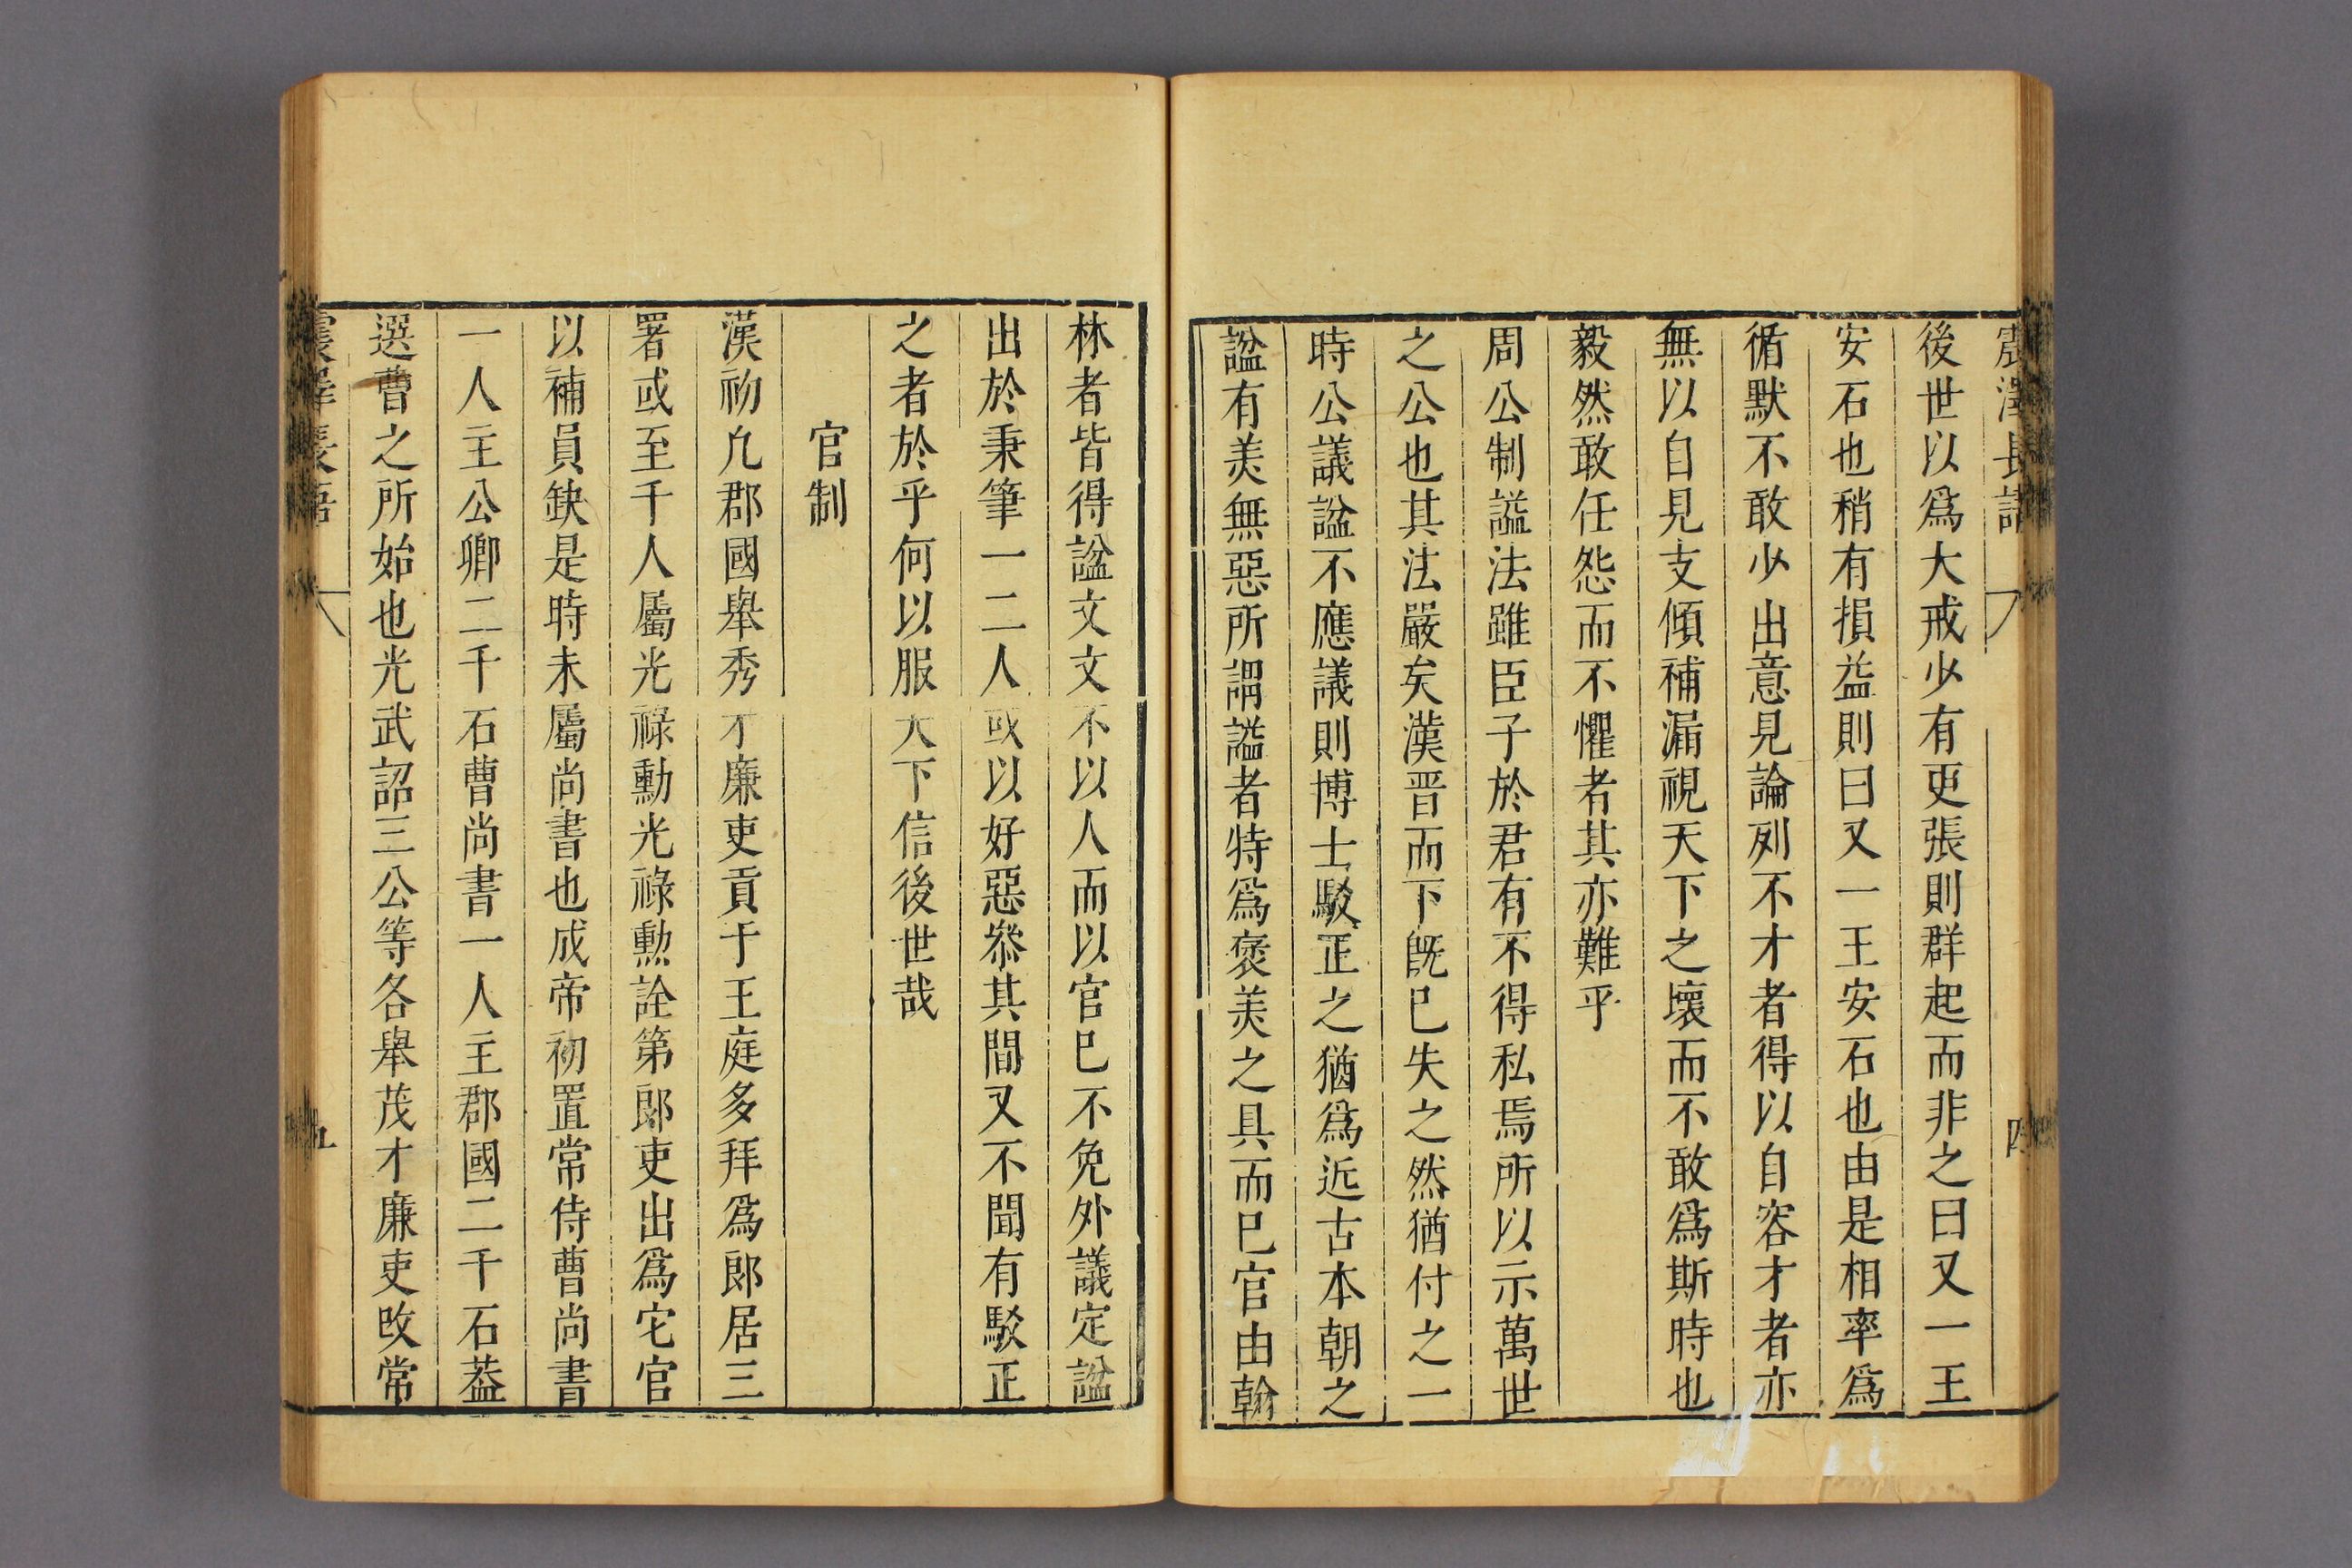 震澤長語
四
後世以爲大戒少有更張則群起而非之曰又一王
安石也稍有損益則曰又一王安石也由是相率爲
循默不敢少出意見論列不才者得以自容才者亦
無以自見支傾補漏視天下之壞而不敢爲斯時也
毅然敢任怨而不懼者其亦難乎
周公制謚法雖臣子於君有不得私焉所以示萬世
之公也其法嚴矣漢晋而下旣已失之然猶付之一
時公議諡不應議則博士駁正之猶爲近古本朝之
諡有美無惡所謂謚者特爲褒美之具而已官由翰
林者皆得諡文文不以人而以官已不免外議定諡
出於秉筆一二人或以好惡叅其間又不聞有駁正
之者於乎何以服天下信後世哉
官制
漢初凢郡國舉秀才廉吏貢于王庭多拜爲郎居三
署或至千人屬光祿勳光祿勲詮第郎吏出爲宅官
以補員缺是時未屬尚書也成帝初置常侍曹尚書
一人主公卿二千石曹尚書一人主郡國二千石葢
選曹之所始也光武詔三公等各舉茂才廉吏改常
震澤長語
五